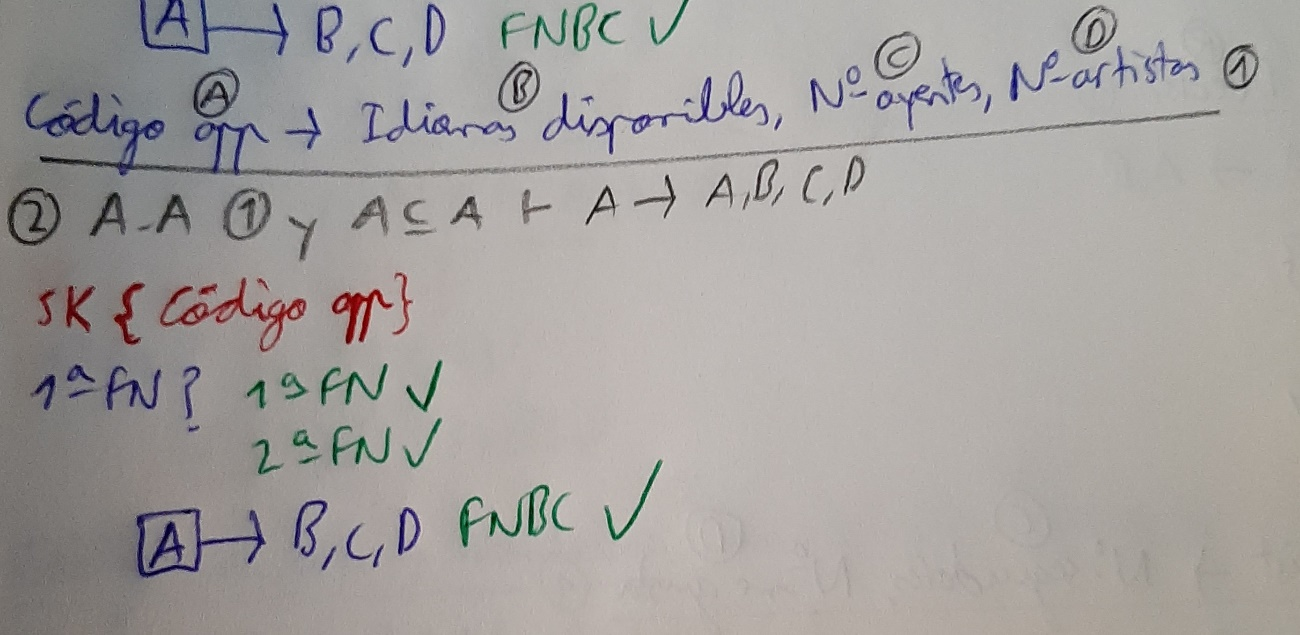 A → B, C, D FNBC ✓
Código app → Idiomas disponibles, Nº oyentes, Nº artistas ①
Ⓐ Ⓑ Ⓒ Ⓓ
② A-A ① y A ⊆ A ⊢ A → A, B, C, D
SK { Código app }
1ª FN? 1ª FN ✓
2ª FN ✓
A → B, C, D FNBC ✓